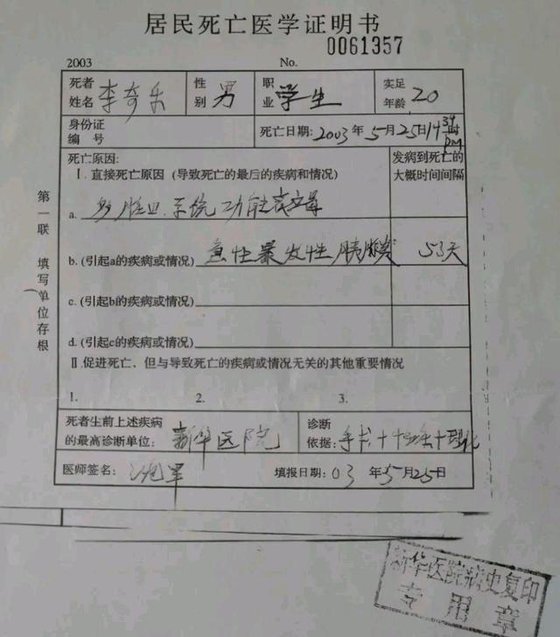 居民死亡医学证明书
0061357
2003 No.
死者姓名 李奇乐 性别 男 职业 学生 实足年龄 20
身份证编号 死亡日期:2003年5月25日14 39 pm
死亡原因: 发病到死亡的大概时间间隔
Ⅰ.直接死亡原因 (导致死亡的最后的疾病和情况)
a. 多脏器系统功能衰竭
b. (引起a的疾病或情况) 急性暴发性胰腺炎 53天
c. (引起b的疾病或情况)
d. (引起c的疾病或情况)
Ⅱ促进死亡，但与导致死亡的疾病或情况无关的其他重要情况
1. 2. 3.
死者生前上述疾病的最高诊断单位: 新华医院 诊断依据: 手术+
医师签名: 填报日期: 03年5月25日
第一联 填写单位存根
新华医院病史复印
专用章